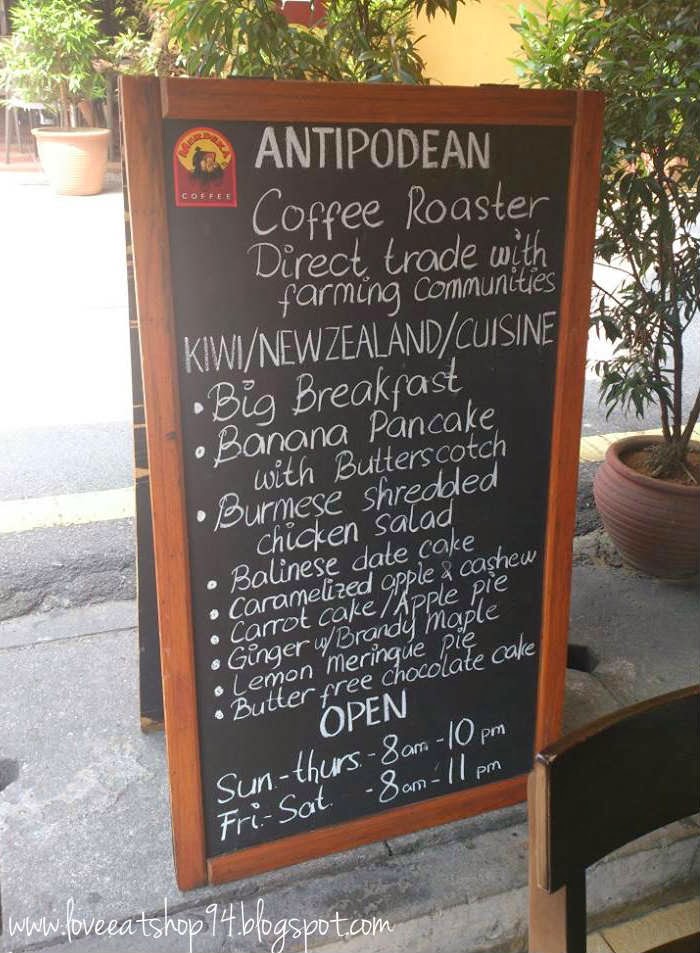 MERDEKA
COFFEE
ANTIPODEAN
Coffee Roaster
Direct trade with
farming communities
KIWI/NEWZEALAND/CUISINE
• Big Breakfast
• Banana Pancake
with Butterscotch
• Burmese shredded
chicken Salad
• Balinese date cake
• Caramelized apple & cashew
• Carrot cake/Apple pie
• Ginger w/Brandy Maple
• Lemon meringue Pie
• Butter free chocolate cake
OPEN
Sun.-thurs. - 8am -10 pm
Fri.-Sat. - 8am -11 pm
www.loveeatshop94.blogspot.com